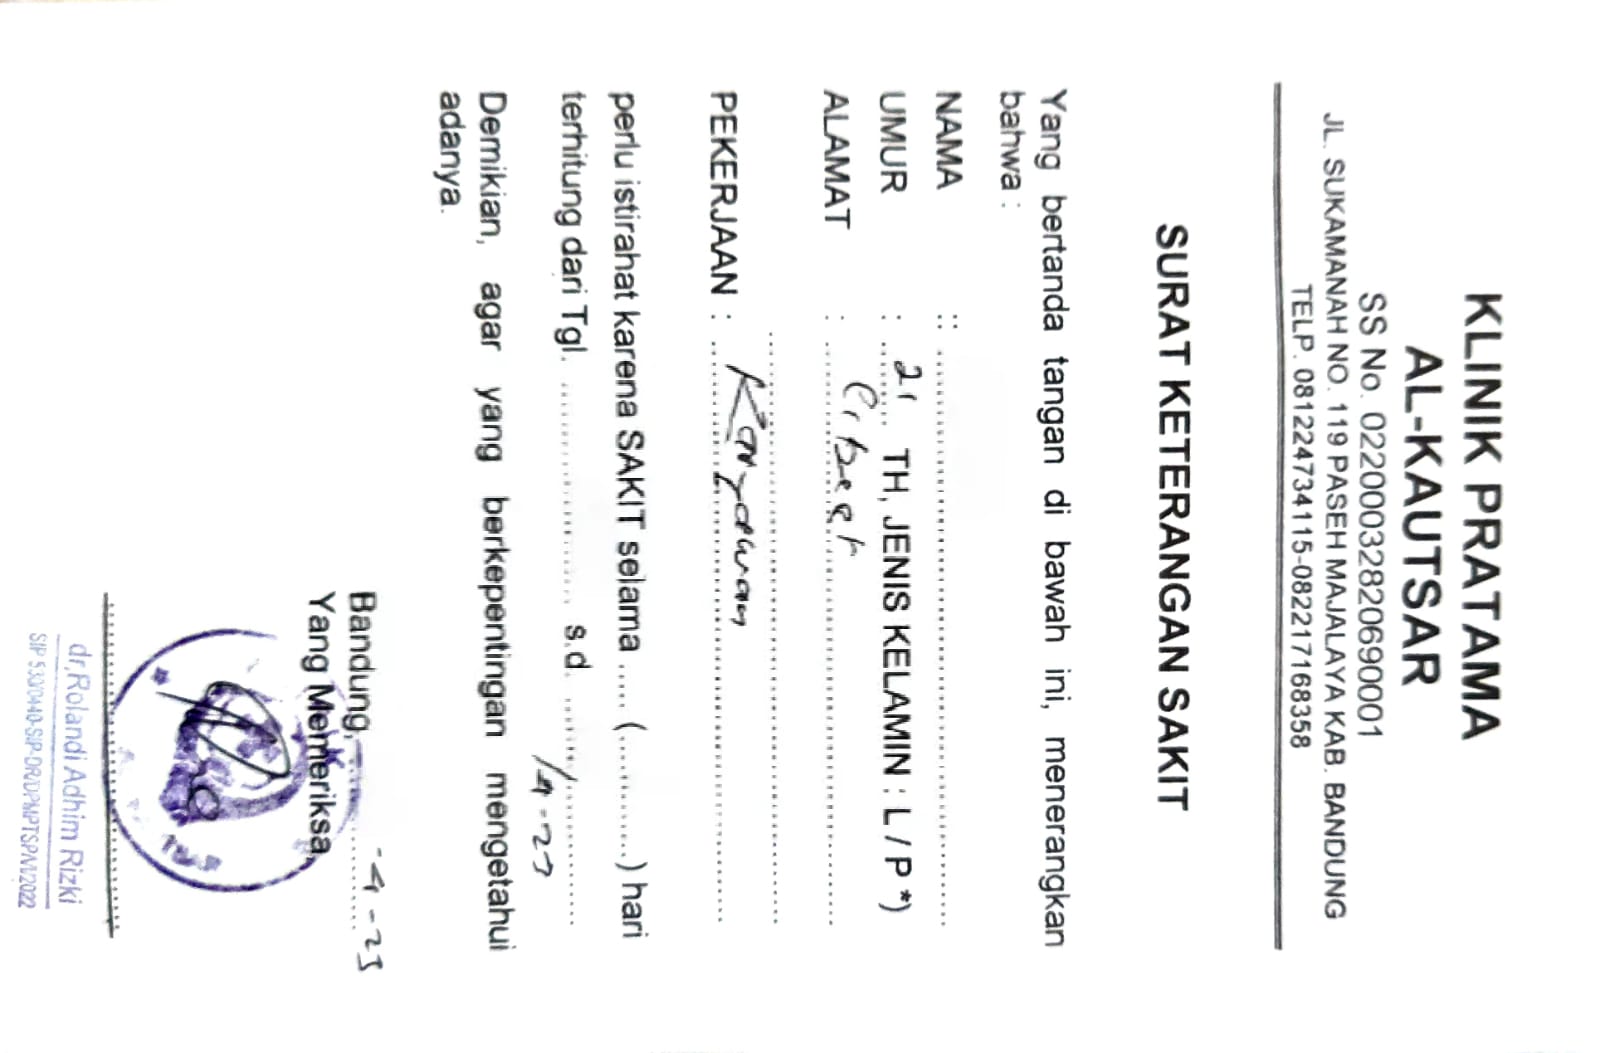 KLINIK PRATAMA
AL-KAUTSAR
SS No. 02200032820690001
JL. SUKAMANAH NO. 119 PASEH MAJALAYA KAB. BANDUNG
TELP. 081224734115-082217168358
SURAT KETERANGAN SAKIT
Yang bertanda tangan di bawah ini, menerangkan
bahwa :
NAMA :
UMUR : 21 TH, JENIS KELAMIN : L / P *)
ALAMAT :
PEKERJAAN : Karyawan
perlu istirahat karena SAKIT selama ..... (............) hari
terhitung dari Tgl. ........................ s.d. ........................
Demikian, agar yang berkepentingan mengetahui
adanya.
Bandung,
Yang Memeriksa,
dr.Rolandi Adhim Rizki